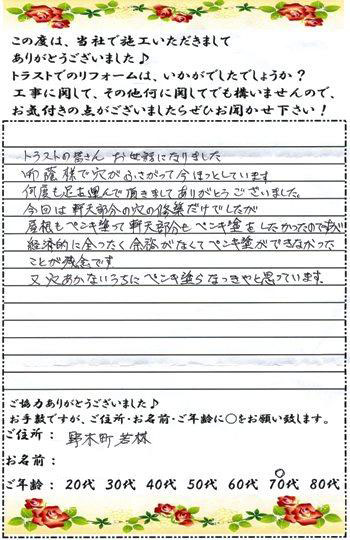 この度は、当社で施工いただきまして
ありがとうございました♪
トラストでのリフォームは、いかがでしたでしょうか？
工事に関して、その他何に関してでも構いませんので、
お気付きの点がございましたらぜひお聞かせ下さい！
トラストの皆さん お世話になりました
御蔭様で穴がふさがって今ほっとしています
何度も足を運んで頂きましてありがとうございました。
今回は軒天部分の穴の修築だけでしたが
屋根もペンキ塗って軒天部分もペンキ塗をしたかったのですが
経済的に全ったく余裕がなくてペンキ塗ができなかった
ことが残念です
又穴あかないうちにペンキ塗らなっきゃと思っています。
ご協力ありがとうございました♪
お手数ですが、ご住所・お名前・ご年齢に○をお願い致します。
ご住所： 野木町若林
お名前：
ご年齢： 20代 30代 40代 50代 60代 70代 80代